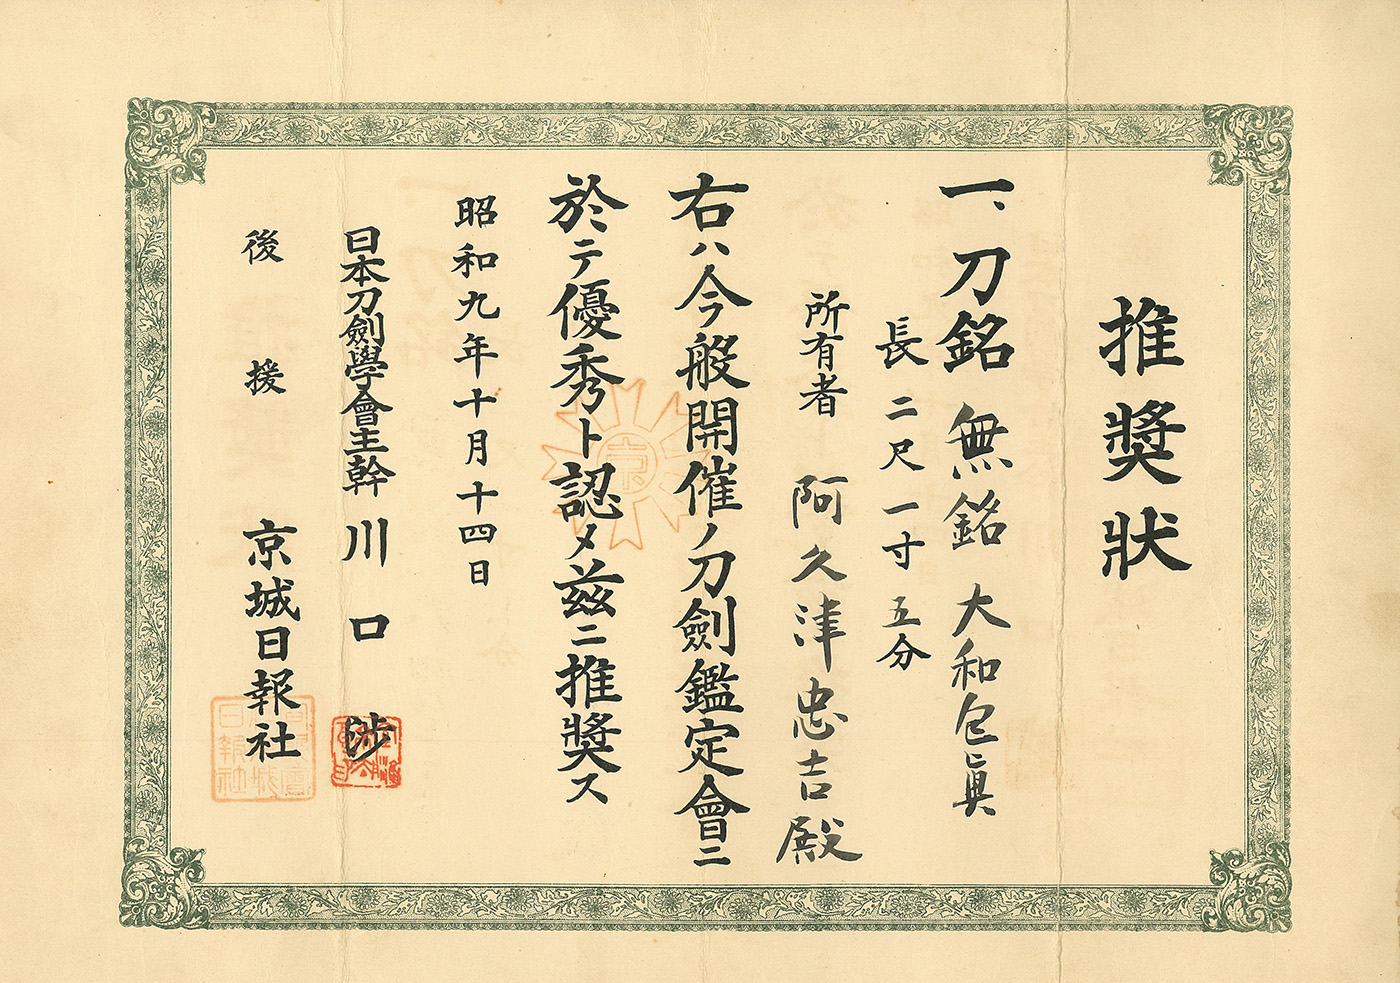 推奬狀
一、刀銘 無銘 大和包眞
長二尺一寸五分
所有者 阿久津忠吉殿
右ハ今般開催ノ刀劍鑑定會ニ
於テ優秀ト認メ茲ニ推奬ス
昭和九年十月十四日
日本刀劍學會主幹 川口 渉
後援 京城日報社
京